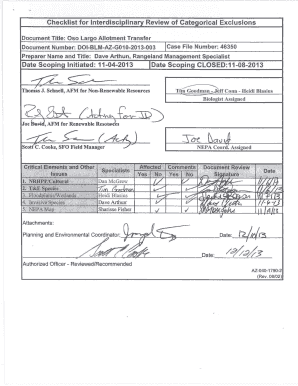 Checklist for Interdisciplinary Review of Categorical Exclusions
Document Title: Oso Largo Allotment Transfer
Document Number: DOI-BLM-AZ-G010-2013-003 Case File Number: 46350
Preparer Name and Title: Dave Arthur, Rangeland Management Specialist
Date Scoping Initiated: 11-04-2013 Date Scoping CLOSED: 11-08-2013
Thomas J. Schnell, AFM for Non-Renewable Resources
Tim Goodman - Jeff Conn - Heidi Blasius
Biologist Assigned
(Acting for JD)
Joe David, AFM for Renewable Resources
(Actg)
Joe David
Scott C. Cooke, SFO Field Manager
NEPA Coord. Assigned
Critical Elements and Other Issues Specialists Affected Yes No Comments Yes No Document Review Signature Date
1. NRHPA/Cultural Dan McGrew
2. T&E Species Tim Goodman
3. Floodplains/Wetlands Heidi Blasius
4. Invasive Species Dave Arthur 11-6-13
5. NEPA Map Sharisse Fisher
Attachments:
Planning and Environmental Coordinator Date:
Date: 12/12/13
Authorized Officer - Reviewed/Recommended
AZ-040-1790-2
(Rev. 09/02)